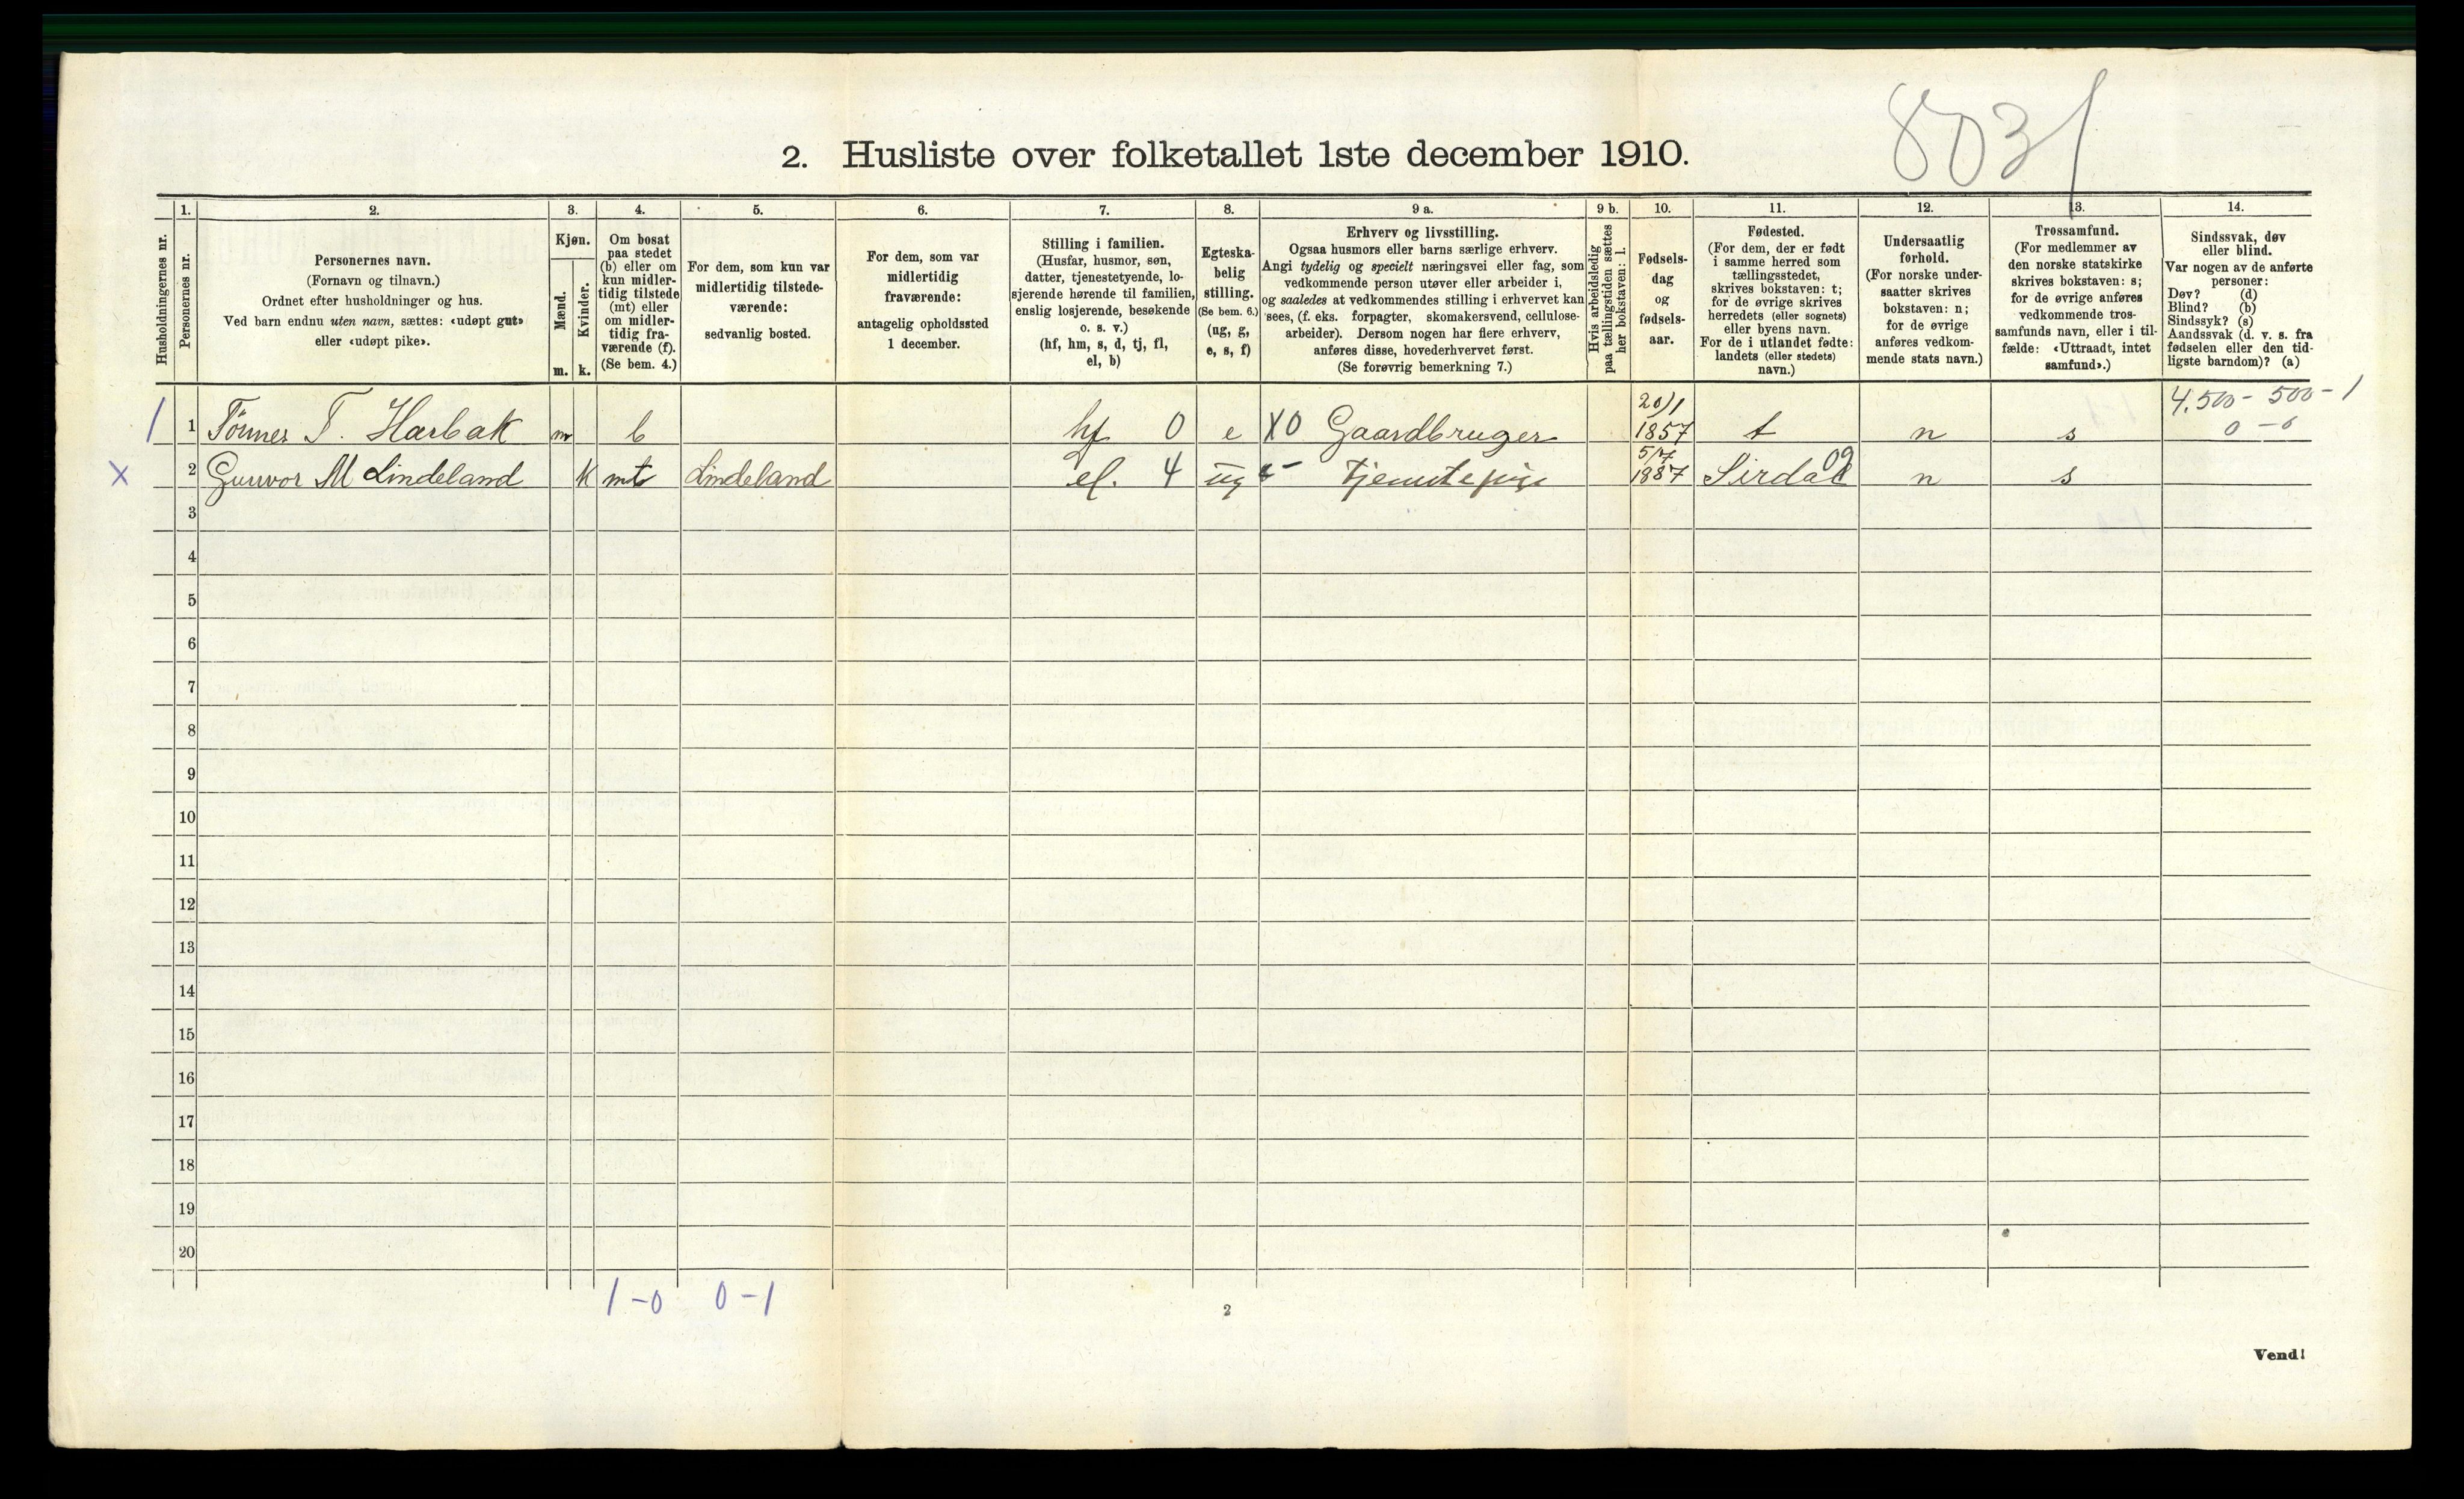 8031
2. Husliste over folketallet 1ste december 1910.
Husholdningernes nr.
1.
Personernes nr.
2.
Personernes navn.
(Fornavn og tilnavn.)
Ordnet efter husholdninger og hus.
Ved barn endnu uten navn, sættes: «udøpt gut»
eller «udøpt pike».
3.
Kjøn.
Mænd.
Kvinder.
m. k.
4.
Om bosat
paa stedet
(b) eller om
kun midler-
tidig tilstede
(mt) eller
om midler-
tidig fra-
værende (f).
(Se bem. 4.)
5.
For dem, som kun var
midlertidig tilstede-
værende:
sedvanlig bosted.
6.
For dem, som var
midlertidig
fraværende:
antagelig opholdssted
1 december.
7.
Stilling i familien.
(Husfar, husmor, søn,
datter, tjenestetyende, lo-
sjerende hørende til familien,
enslig losjerende, besøkende
o. s. v.)
(hf, hm, s, d, tj, fl,
el, b)
8.
Egteska-
belig
stilling.
(Se bem. 6.)
(ug, g,
e, s, f)
9 a.
Erhverv og livsstilling.
Ogsaa husmors eller barns særlige erhverv.
Angi tydelig og specielt næringsvei eller fag, som
vedkommende person utøver eller arbeider i,
og saaledes at vedkommendes stilling i erhvervet kan
sees, (f. eks. forpagter, skomakersvend, cellulose-
arbeider). Dersom nogen har flere erhverv,
anføres disse, hovederhvervet først.
(Se forøvrig bemerkning 7.)
9 b.
Hvis arbeidsledig
paa tællingstiden sættes
her bokstaven: l.
10.
Fødsels-
dag
og
fødsels-
aar.
11.
Fødested.
(For dem, der er født
i samme herred som
tællingsstedet,
skrives bokstaven: t;
for de øvrige skrives
herredets (eller sognets)
eller byens navn.
For de i utlandet fødte:
landets (eller stedets)
navn.)
12.
Undersaatlig
forhold.
(For norske under-
saatter skrives
bokstaven: n;
for de øvrige
anføres vedkom-
mende stats navn.)
13.
Trossamfund.
(For medlemmer av
den norske statskirke
skrives bokstaven: s;
for de øvrige anføres
vedkommende tros-
samfunds navn, eller i til-
fælde: «Uttraadt, intet
samfund».)
14.
Sindssvak, døv
eller blind.
Var nogen av de anførte
personer:
Døv? (d)
Blind? (b)
Sindssyk? (s)
Aandssvak (d. v. s. fra
fødselen eller den tid-
ligste barndom)? (a)
1 1 Tönnes T. Harbak m b hf 0 e X0 Gaardbruger 20/1 1857 t n s 4.500 - 500 - 1
0 - 0
X 2 Gunvor M Lindeland k mt Lindeland el. 4 ug - Tjenestepige 5/7 1887 Sirdal 09 n s
3
4
5
6
7
8
9
10
11
12
13
14
15
16
17
18
19
20
1 - 0 0 - 1
2
Vend!